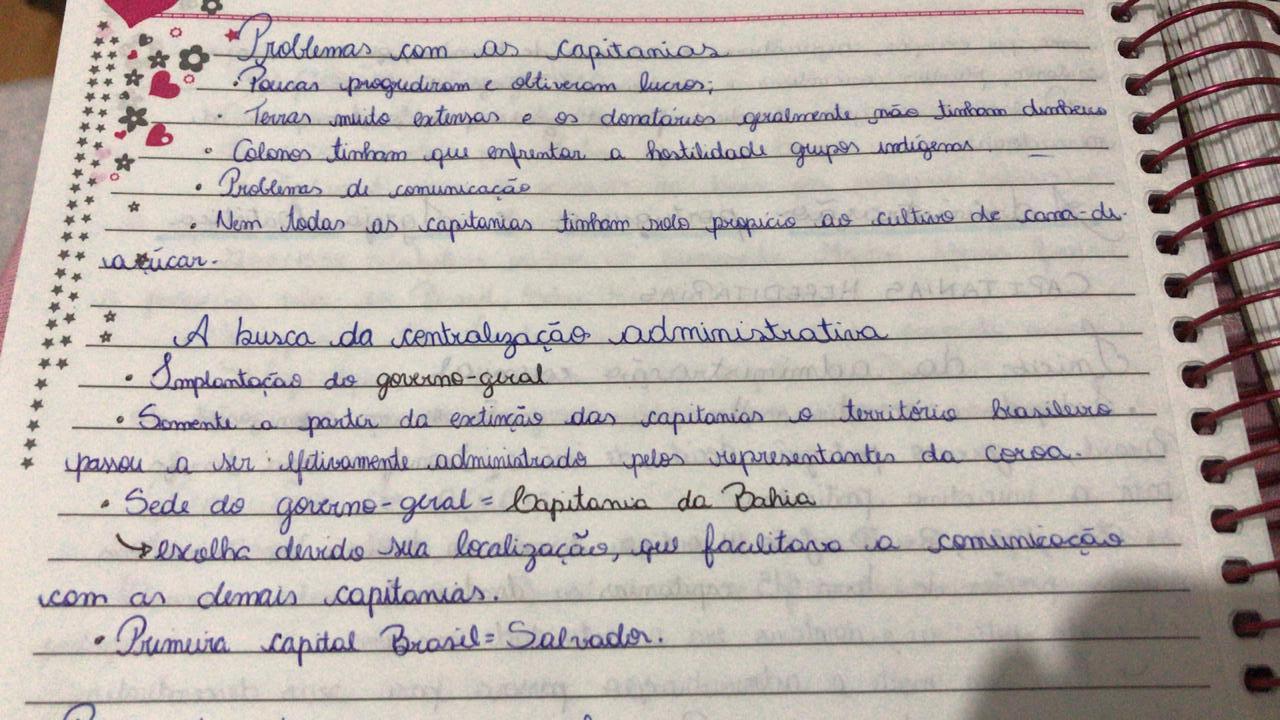 Problemas com as capitanias
· Poucas progrediram e obtiveram lucros;
· Terras muito extensas e os donatários geralmente não tinham dinheiro
· Colonos tinham que enfrentar a hostilidade grupos indígenas.
· Problemas de comunicação
· Nem todas as capitanias tinham solo propício ao cultivo de cana-de-
açúcar.
A busca da centralização administrativa
· Implantação do governo-geral
· Somente a partir da extinção das capitanias o território brasileiro
passou a ser efetivamente administrado pelos representantes da coroa.
· Sede do governo-geral = Capitania da Bahia
↳ escolha devido sua localização, que facilitava a comunicação
com as demais capitanias.
· Primeira capital Brasil = Salvador.